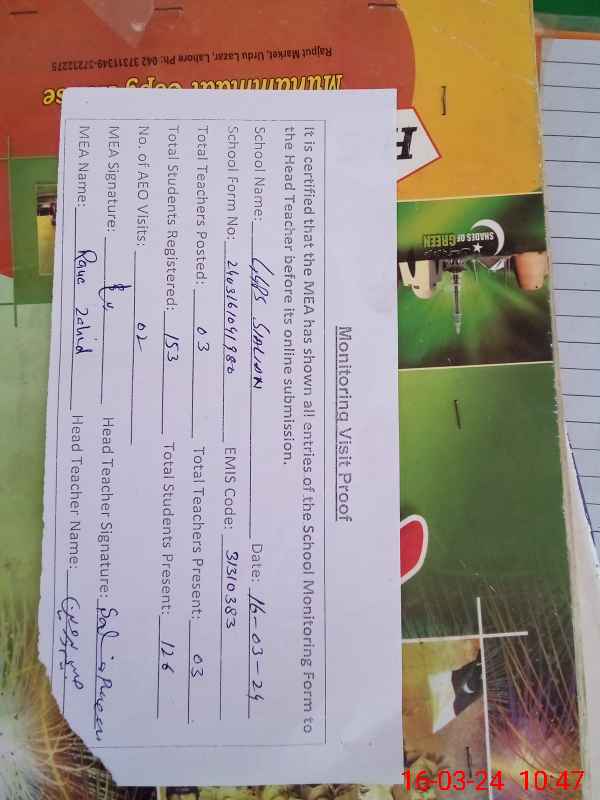 Monitoring Visit Proof
It is certified that the MEA has shown all entries of the School Monitoring Form to
the Head Teacher before its online submission.
School Name: GGPS Date: 16-03-24
School Form No: EMIS Code: 31310383
Total Teachers Posted: 03 Total Teachers Present: 03
Total Students Registered: 153 Total Students Present: 126
No. of AEO Visits: 02
MEA Signature: Head Teacher Signature:
MEA Name: Rave Zahid Head Teacher Name:
Rajput Market, Urdu Lazar, Lahore Ph: 042 37311349-37232275
SHADES OF
GREEN
16-03-24 10:47